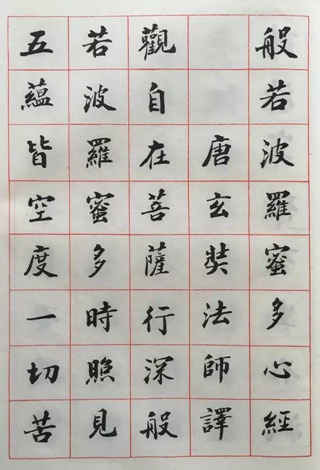 般若波羅蜜多心經
唐玄奘法師譯
觀自在菩薩行深般
若波羅蜜多時照見
五蘊皆空度一切苦